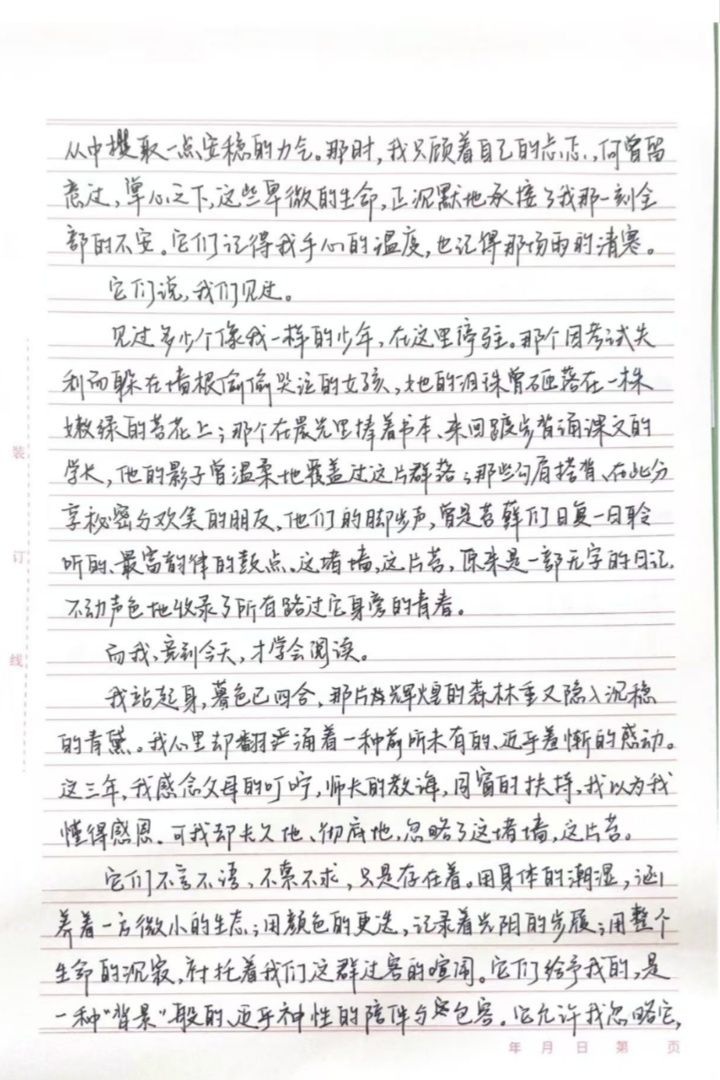 从中攫取一点安稳的力气。那时，我只顾着自己的忐忑，何曾留
意过，掌心之下，这些卑微的生命，正沉默地承接了我那一刻全
部的不安。它们记得我手心的温度，也记得那场雨的清寒。
它们说，我们见过。
见过多少个像我一样的少年，在这里停驻。那个因考试失
利而躲在墙根偷偷哭泣的女孩，她的泪珠曾砸落在一株
嫩绿的苔花上；那个在晨光里捧着书本、来回踱步背诵课文的
学长，他的影子曾温柔地覆盖过这片群落；那些勾肩搭背、在此分
享秘密与欢笑的朋友，他们的脚步声，曾是苔藓们日复一日聆
听的、最富韵律的鼓点。这堵墙，这片苔，原来是一部无字的日记，
不动声色地收录了所有路过它身旁的青春。
而我，竟到今天，才学会阅读。
我站起身，暮色已四合，那片辉煌的森林重又隐入沉稳
的青黛。我心里却翻涌着一种前所未有的、近乎羞惭的感动。
这三年，我感念父母的叮咛，师长的教诲，同窗的扶持，我以为我
懂得感恩。可我却长久地、彻底地，忽略了这堵墙，这片苔。
它们不言不语，不索不求，只是存在着。用身体的潮湿，涵
养着一方微小的生态；用颜色的更迭，记录着光阴的步履；用整个
生命的沉寂，衬托着我们这群过客的喧闹。它们给予我的，是
一种“背景”般的、近乎神性的陪伴与包容。它允许我忽略它，
装
订
线
年 月 日 第 页